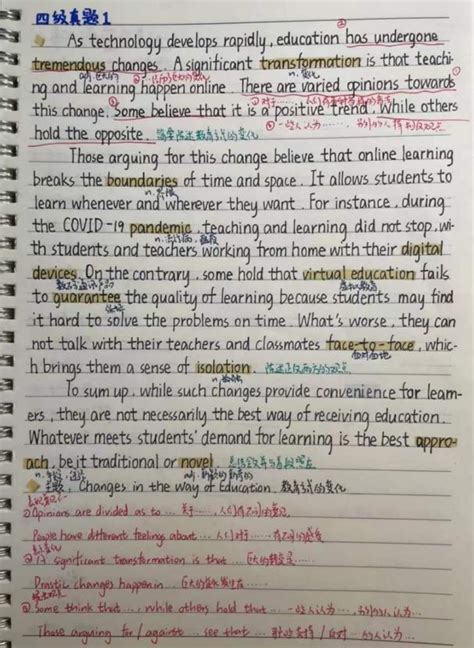 四级真题1
As technology develops rapidly, education has undergone
tremendous changes. A significant transformation is that teachi-
ng and learning happen online. There are varied opinions towards
this change. Some believe that it is a positive trend. While others
hold the opposite.
Those arguing for this change believe that online learning
breaks the boundaries of time and space. It allows students to
learn whenever and wherever they want. For instance, during
the COVID-19 pandemic, teaching and learning did not stop, wi-
th students and teachers working from home with their digital
devices. On the contrary, some hold that virtual education fails
虚拟教育
to guarantee the quality of learning because students may find
保证
it hard to solve the problems on time. What's worse, they can
not talk with their teachers and classmates face-to-face, whic-
面对面地
h brings them a sense of isolation.
To sum up, while such changes provide convenience for learn-
ers, they are not necessarily the best way of receiving education.
Whatever meets students' demand for learning is the best appro-
ach, be it traditional or novel.
主题: Changes in the way of Education. 教育方式的变化
①Opinions are divided as to … 关于……人们有不同的意见
People have different feelings about… 人们对于……有不同的感受
② A significant transformation is that … 巨大的转变是……
Drastic changes happen in …
③ Some think that …, while others hold that … 一些人认为…, 别的人认为…
Those arguing for / against … see that …